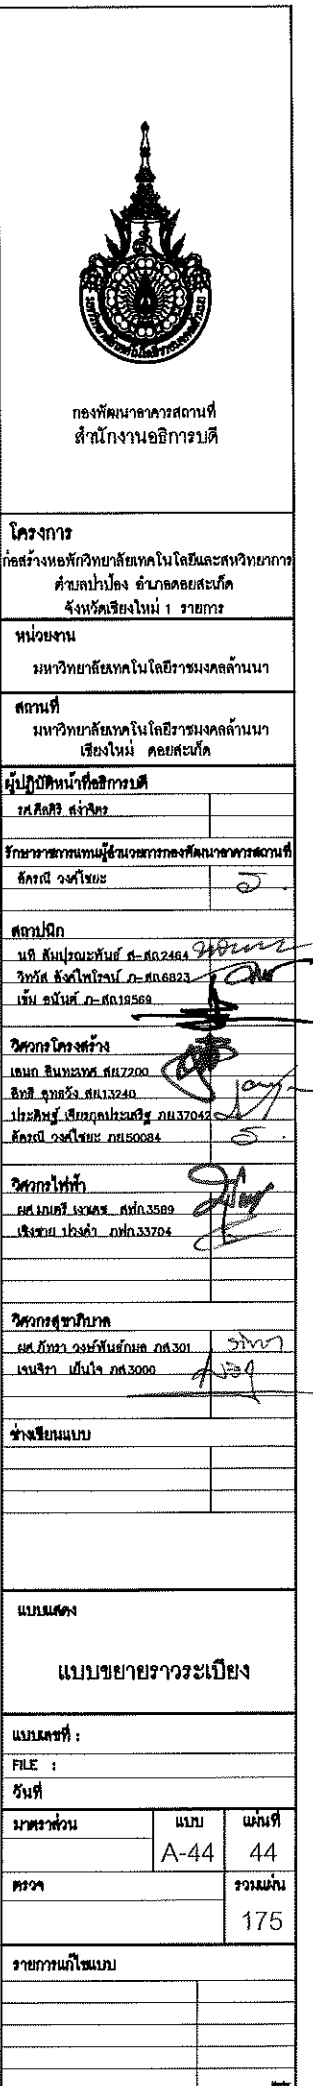 กองพัฒนาอาคารสถานที่
สำนักงานอธิการบดี
โครงการ
ก่อสร้างหอพักวิทยาลัยเทคโนโลยีและสหวิทยาการ
ตำบลป่าป้อง อำเภอดอยสะเก็ด
จังหวัดเชียงใหม่ 1 รายการ
หน่วยงาน
มหาวิทยาลัยเทคโนโลยีราชมงคลล้านนา
สถานที่
มหาวิทยาลัยเทคโนโลยีราชมงคลล้านนา
เชียงใหม่ ดอยสะเก็ด
ผู้ปฏิบัติหน้าที่อธิการบดี
รศ.ศีลศิริ สง่าจิตร
รักษาราชการแทนผู้อำนวยการกองพัฒนาอาคารสถานที่
อัครณี วงศ์ไชยะ
สถาปนิก
นที สัมปุรณะพันธ์ ส-สถ.2464
วิทวัส สิงค์ไพโรจน์ ภ-สถ.6823
เข้ม อนันต์ ภ-สถ.19569
วิศวกรโครงสร้าง
เอนก สินทะเทศ สย.7200
อิทธิ สย.13240
ประดิษฐ์ เจียรกุลประเสริฐ ภย.37042
อัครณี วงศ์ไชยะ ภย.50084
วิศวกรไฟฟ้า
ผศ.มนตรี เงาเดช สฟก.3589
เชิงชาย ปวงคำ ภฟก.33704
วิศวกรสุขาภิบาล
ผศ.ภัทรา วงษ์พันธ์กมล ภส.301
เจนจิรา เย็นใจ ภส.3000
ช่างเขียนแบบ
แบบแสดง
แบบขยายราวระเบียง
แบบเลขที่ :
FILE :
วันที่
มาตราส่วน แบบ แผ่นที่
A-44 44
ตรวจ รวมแผ่น
175
รายการแก้ไขแบบ